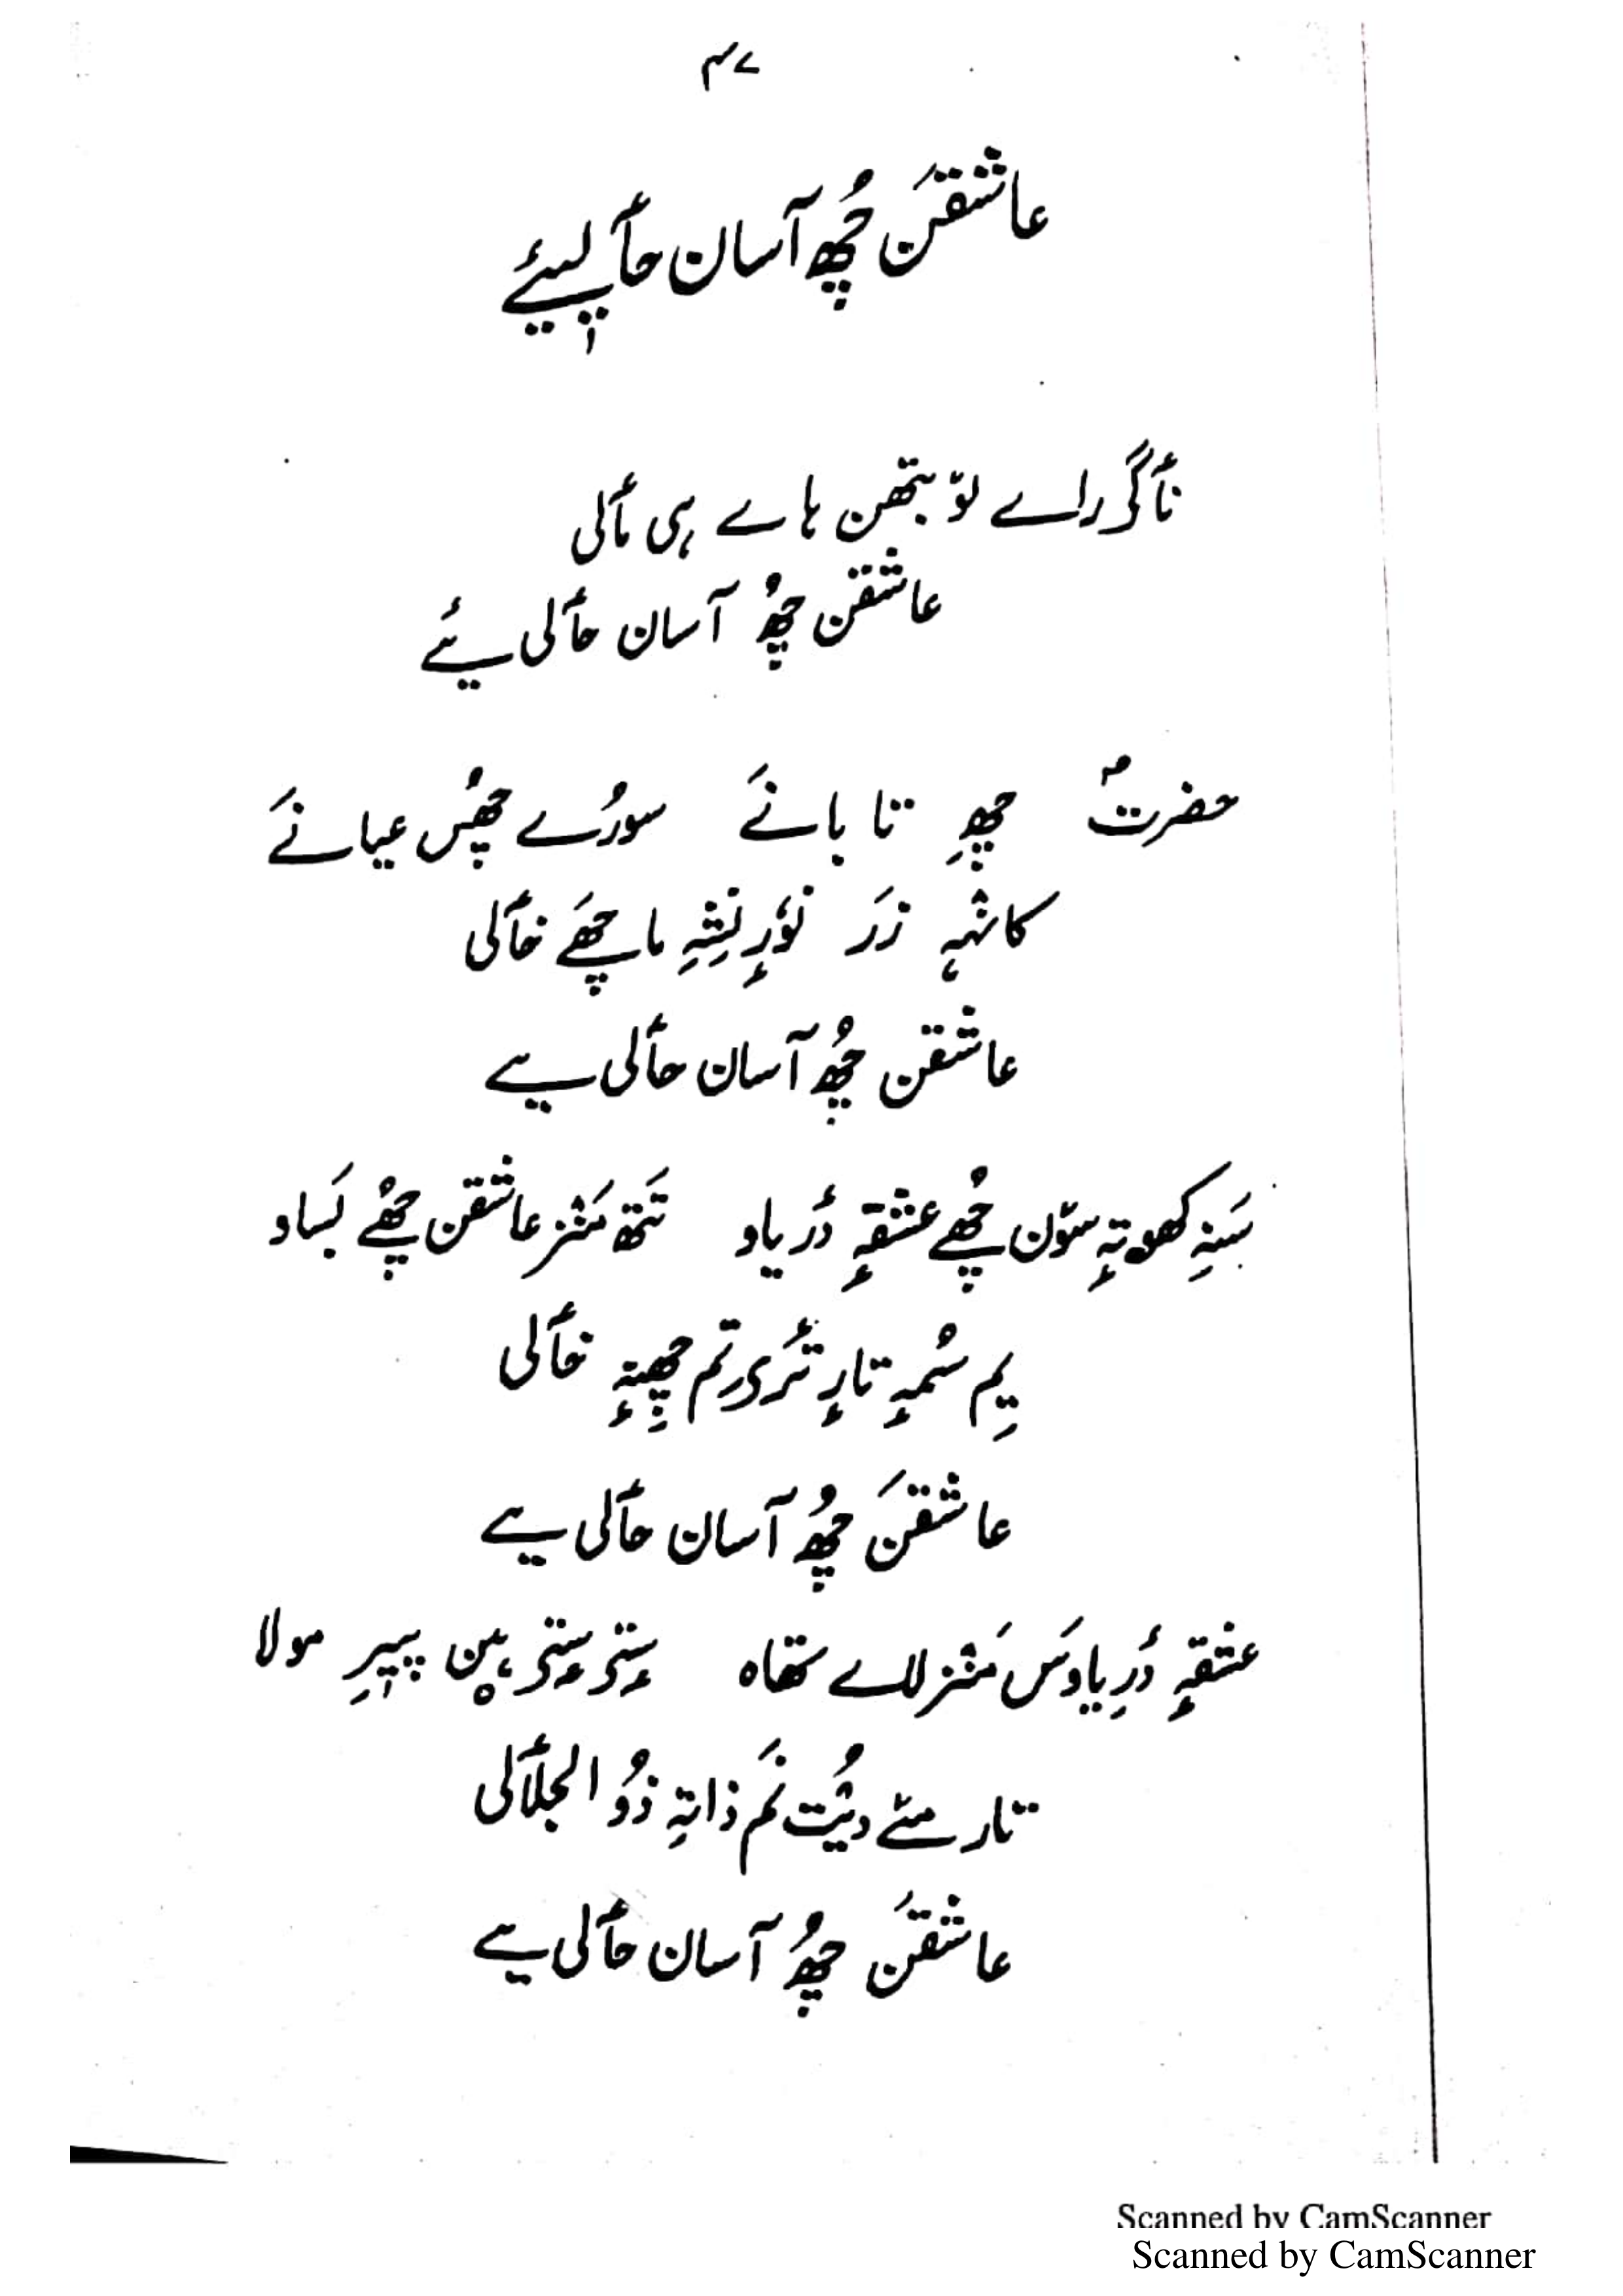 ۴۷
عاشقنَ چھُ آسان حاٟلیئے
ناٟگرٛاے لوٚبتھن ہاے ہی ماٟلی
عاشقن چھُ آسان حاٟلی یئے
حضرتؐ چھِ تابانےَ سورُے چھُس عیانےَ
کانٛہہ زرَ نوٗرٕ نِشہِ ما چھےَ خاٟلی
عاشقن چھُ آسان حاٟلی یے
سَنہِ کھوتہٕ سوٚن چھُے عشقہٕ دٔریاو تَتھ مَنٛز عاشقن چھُے بَساو
یِم سُمہٕ تارٕ تٔرۍ تم چھِنہٕ خاٟلی
عاشقنَ چھُ آسان حاٟلی یے
عشقہٕ دٔرِیاوَس مَنٛز للاے تھاہ وٕتۍ وٕتۍ پیرِ مولا
تار مےٚ دیُٛت نَم ذاتہِ ذُو الجلاٟلی
عاشقنَ چھُ آسان حاٟلی یے
Scanned by CamScanner
Scanned by CamScanner